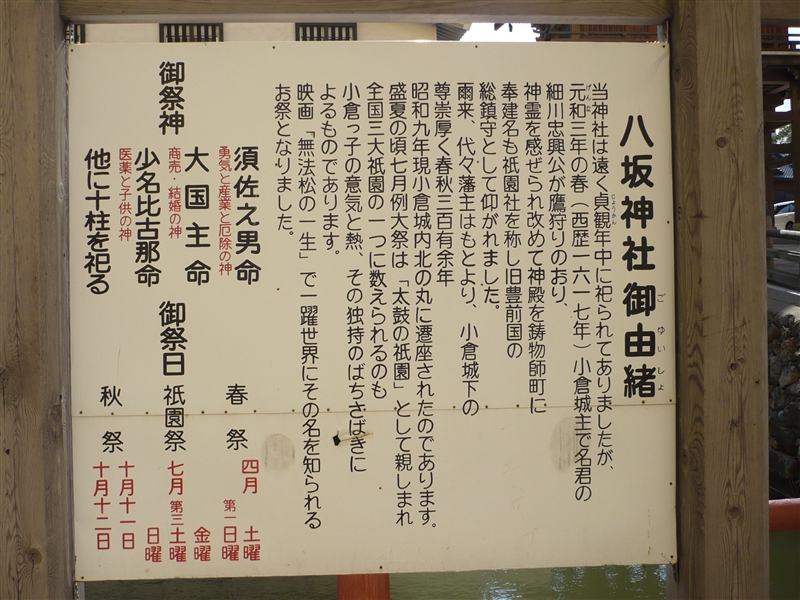 八坂神社御由緒
ごゆいしょ
当神社は遠く貞観年中に祀られてありましたが、
じょうかん
元和三年の春（西歴一六一七年）小倉城主で名君の
げんな
細川忠興公が鷹狩りのおり、
神霊を感ぜられ改めて神殿を鋳物師町に
奉建名も祇園社を称し旧豊前国の
総鎮守として仰がれました。
爾来、代々藩主はもとより、小倉城下の
尊崇厚く春秋三百有余年
昭和九年現小倉城内北の丸に遷座されたのであります。
盛夏の頃七月例大祭は「太鼓の祇園」として親しまれ
全国三大祇園の一つに数えられるのも
小倉っ子の意気と熱、その独持のばちさばきに
よるものであります。
映画「無法松の一生」で一躍世界にその名を知られる
お祭となりました。
御祭神
須佐之男命
勇気と産業と厄除の神
大国主命
商売・結婚の神
少名比古那命
医薬と子供の神
他に十柱を祀る
御祭日
春祭
四月 第一 土曜 日曜
祇園祭
七月 第三 金曜 土曜 日曜
秋祭
十月十一日
十月十二日